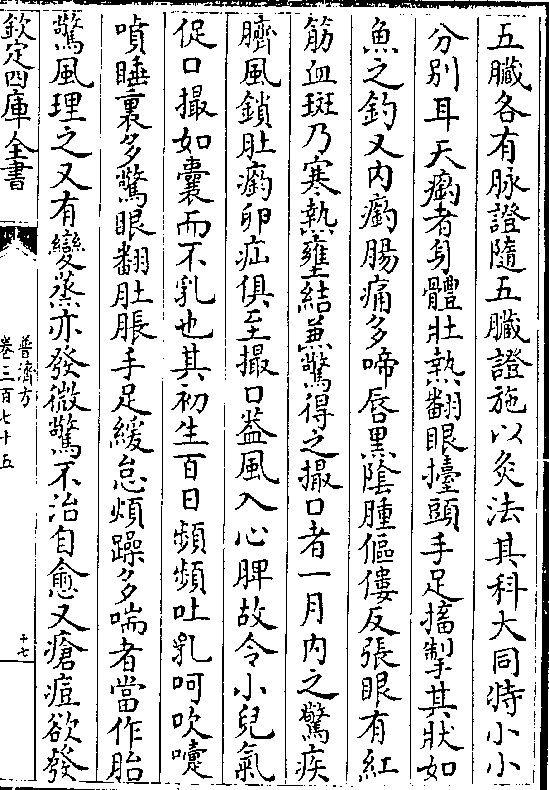 五臟各有脉證隨五臟證施以灸法其科大同特小小
分别耳天瘹者身體壯熱翻眼擡頭手足搐掣其狀如
魚之釣又内瘹腸痛多啼唇黒陰腫傴僂反張眼有紅
筋血斑乃寒熱壅結兼驚得之撮口者一月内之驚疾
臍風鎖肚瘹卵疝俱至撮口葢風入心脾故令小兒氣
促口撮如囊而不乳也其初生百日頻頻吐乳呵吹嚏
噴睡裏多驚眼翻肚脹手足緩怠煩躁多喘者當作胎
驚風理之又有變蒸亦發微驚不治自愈又瘡痘欲發
欽定四庫全書
普濟方
卷三百七十五
十七